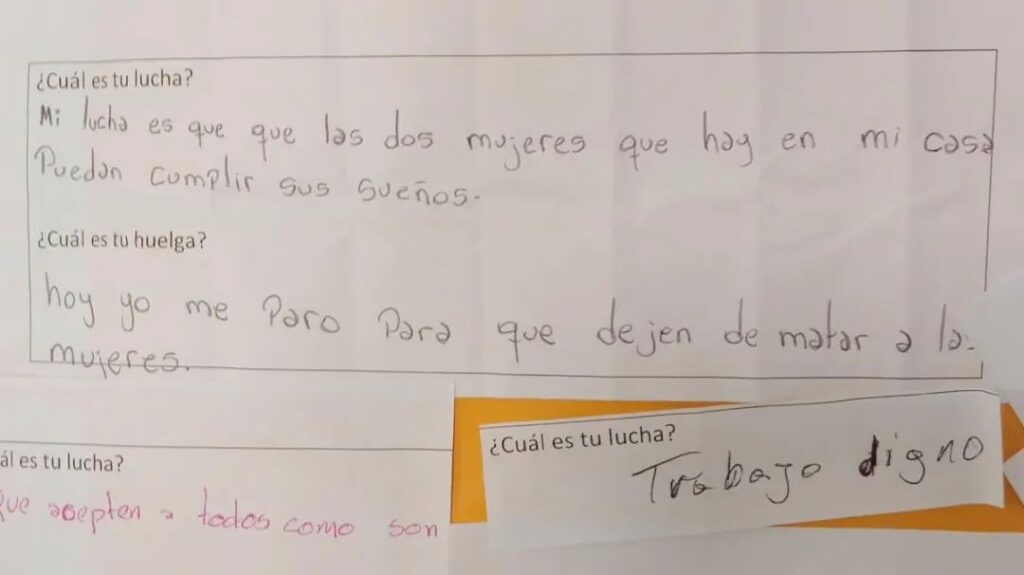 ¿Cuál es tu lucha?
Mi lucha es que que las dos mujeres que hay en mi casa
Puedan cumplir sus sueños.
¿Cuál es tu huelga?
hoy yo me Paro Para que dejen de matar a la.
mujeres.
ál es tu lucha?
que acepten a todos como son
¿Cuál es tu lucha?
Trabajo digno